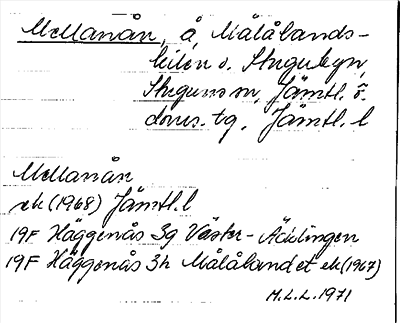 Mellanån, å, Målålands-
kilen o. Stuguby n,
Stuguns sn, Jämtl. ö.
doms. tg, Jämtl. l
Mellanån
ek (1968) Jämtl. l
19F Häggenås 3g Väster-Äcklingen
19F Häggenås 3h Målålandet ek (1967)
M.L.L. 1971